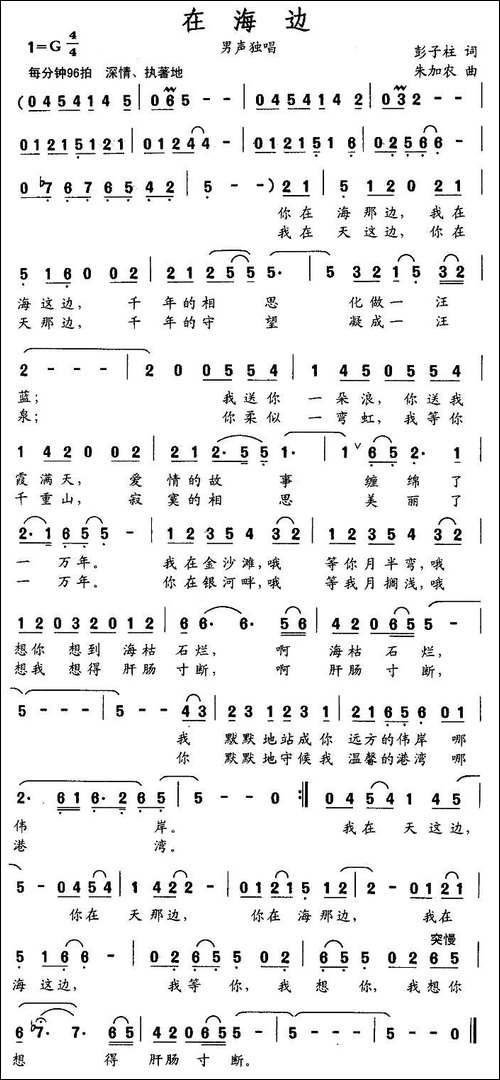 在海边
1=G 4/4
男声独唱
彭子柱 词
每分钟96拍 深情、执著地
朱加农 曲
(045 4145 | 065 - - | 045 4142 | 032 - - |
01215121 | 01244 - | 0121516 | 02566 - |
0♭7676542 | 5 - -) 21 | 5 120 21 |
你在 海那边, 我在
我在 天这边, 你在
5 160 02 | 212 55 5· | 5 321 5 32 |
海这边, 千 年的相 思 化做一 汪
天那边, 千 年的守 望 凝成一 汪
2 - - - | 2 0 0554 | 1 450 554 |
蓝; 我送你 一朵浪, 你送我
泉; 你柔似 一弯虹, 我等你
1 420 02 | 212· 55 1· | 1 65 2· 1 |
霞满天, 爱 情的故 事 缠绵了
千重山, 寂 寞的相 思 美丽了
2·1 655 - | 1235432 | 1235432 |
一 万年。 我在金沙滩,哦 等你月半弯,哦
一 万年。 你在银河畔,哦 等我月搁浅,哦
12032012 | 66· 6· 56 | 4206555 - |
想你 想到 海枯 石烂, 啊 海枯 石烂,
想我 想得 肝肠 寸断, 啊 肝肠 寸断,
5 - - - | 5 - - 43 | 23 123 1 | 2165 6 01 |
我 默默地站成你 远方的伟岸 哪
你 默默地守候我 温馨的港湾 哪
2· 616·265 | 5 - - 0 :‖ 04541 45 |
伟 岸。 我在 天这边,
港 湾。
5 - 0454 | 1 422 - | 0121512 | 2 - 0121 |
你在 天那边, 你在 海那边, 我在
突慢
5 166 - | 02655 02 | 655 02 65 |
海这边, 我 等 你, 我 想 你, 我想你
6 ♭7· 7· 65 | 4206555 | 5 - - - ‖
想 得 肝肠 寸 断。